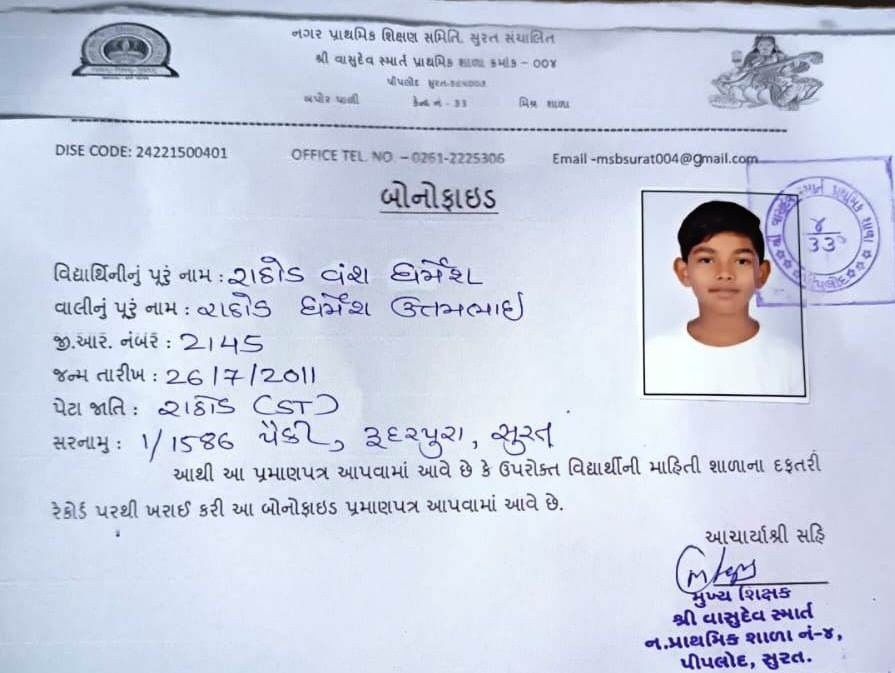 નગર પ્રાથમિક શિક્ષણ સમિતિ, સુરત સંચાલિત
શ્રી વાસુદેવ સ્માર્ત પ્રાથમિક શાળા ક્રમાંક - ૦૦૪
પીપલોદ સુરત-૩૯૫૦૦૭
બપોર પાળી કેન્દ્ર નં - ૩૩ મિશ્ર શાળા
DISE CODE: 24221500401 OFFICE TEL. NO. – 0261-2225306 Email -msbsurat004@gmail.com
બોનોફાઇડ
૪
33
પીપલોદ
વિદ્યાર્થિનીનું પૂરું નામ : રાઠોડ વંશ ધર્મેશ
વાલીનું પૂરું નામ : રાઠોડ ધર્મેશ ઉત્તમભાઈ
જી.આર. નંબર : 2145
જન્મ તારીખ : 26/7/2011
પેટા જાતિ : રાઠોડ (ST)
સરનામુ : 1/1586 પૈકી, રૂદરપુરા, સુરત
આથી આ પ્રમાણપત્ર આપવામાં આવે છે કે ઉપરોક્ત વિદ્યાર્થીની માહિતી શાળાના દફતરી
રેકોર્ડ પરથી ખરાઈ કરી આ બોનોફાઇડ પ્રમાણપત્ર આપવામાં આવે છે.
આચાર્યાશ્રી સહિ
મુખ્ય શિક્ષક
શ્રી વાસુદેવ સ્માર્ત
ન.પ્રાથમિક શાળા નં-૪,
પીપલોદ, સુરત.